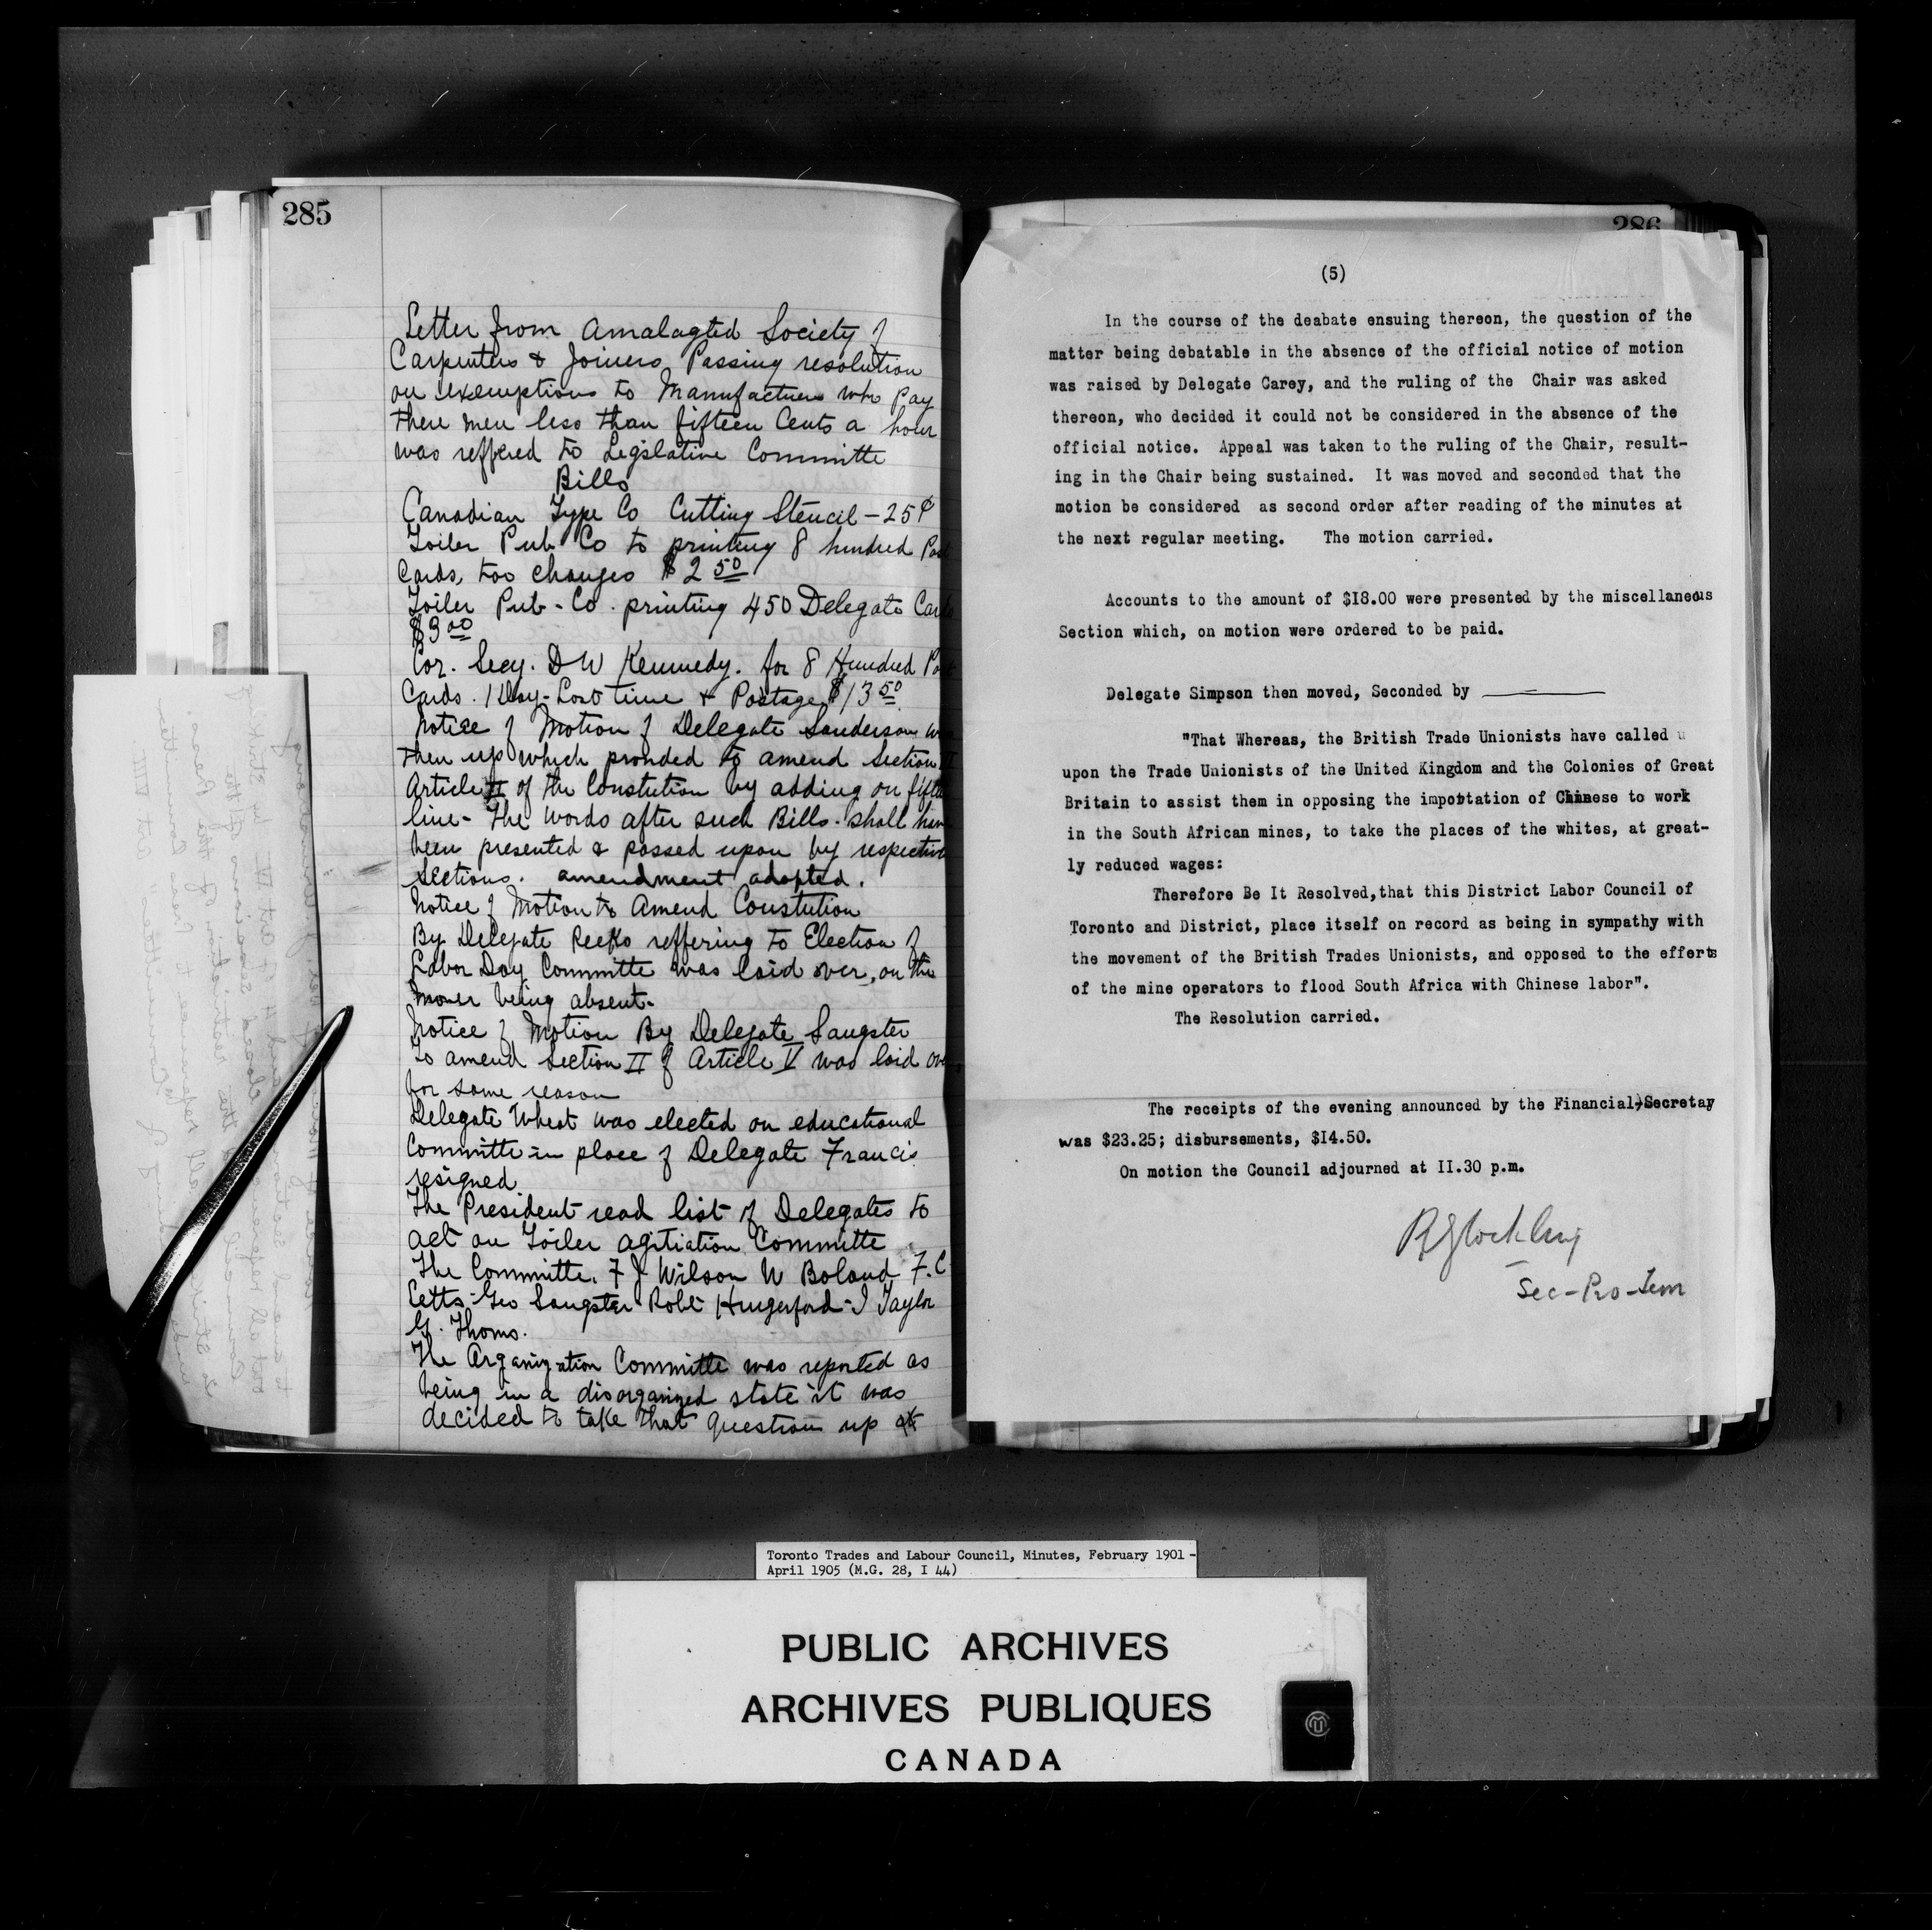 285
Letter from Amalagted Society of
Carpenters & Joiners Passing resolution
on exemptions to Manufactuers who Pay
there men less than fifteen Cents a hour
was reffered to Legslative Committe
Bills
Canadian Type Co Cutting Stencil - 25¢
Toiler Pub Co to printing 8 hundred
Cards, too changes $2 50
Toiler Pub - Co. printing 450 Delegate
$3 00
Cor. Secy. D W Kennedy. for 8 Hundred
Cards. 1 Day - Lost time & Postage $13 50
Notice of Motion of Delegate Sanderson
then up which provided to amend Section
Article II of the Constution by adding on
line - The words after such Bills. shall
been presented & passed upon by respective
Sections. amendment adopted.
Notice of Motion to Amend Constution
By Delegate reffering to Election of
Labor Day Committe was laid over, on the
mover being absent -
Notice of Motion By Delegate Sangster
to amend Section II of Article V was laid
for same reason
Delegate Wheat was elected on educational
Committe in place of Delegate Francis
resigned
The President read list of Delegates to
act on Toiler agitiation Committe
The Committe. F J Wilson W Boland F. C
Cetts - Geo Sangster Robt Hungerford - I Taylor
G. Thoms.
The Organization Committe was reported as
being in a disorganized state it was
decided to take that question up at
286
(5)
In the course of the deabate ensuing thereon, the question of the
matter being debatable in the absence of the official notice of motion
was raised by Delegate Carey, and the ruling of the Chair was asked
thereon, who decided it could not be considered in the absence of the
official notice. Appeal was taken to the ruling of the Chair, result-
ing in the Chair being sustained. It was moved and seconded that the
motion be considered as second order after reading of the minutes at
the next regular meeting. The motion carried.
Accounts to the amount of $I8.00 were presented by the miscellaneous
Section which, on motion were ordered to be paid.
Delegate Simpson then moved, Seconded by
"That Whereas, the British Trade Unionists have called u
upon the Trade Unionists of the United Kingdom and the Colonies of Great
Britain to assist them in opposing the importation of Chinese to work
in the South African mines, to take the places of the whites, at great-
ly reduced wages:
Therefore Be It Resolved,that this District Labor Council of
Toronto and District, place itself on record as being in sympathy with
the movement of the British Trades Unionists, and opposed to the efforts
of the mine operators to flood South Africa with Chinese labor".
The Resolution carried.
The receipts of the evening announced by the Financial Secretay
was $23.25; disbursements, $I4.50.
On motion the Council adjourned at II.30 p.m.
R Glockling
Sec - Pro - Tem
Toronto Trades and Labour Council, Minutes, February 1901 -
April 1905 (M.G. 28, I 44)
PUBLIC ARCHIVES
ARCHIVES PUBLIQUES
CANADA